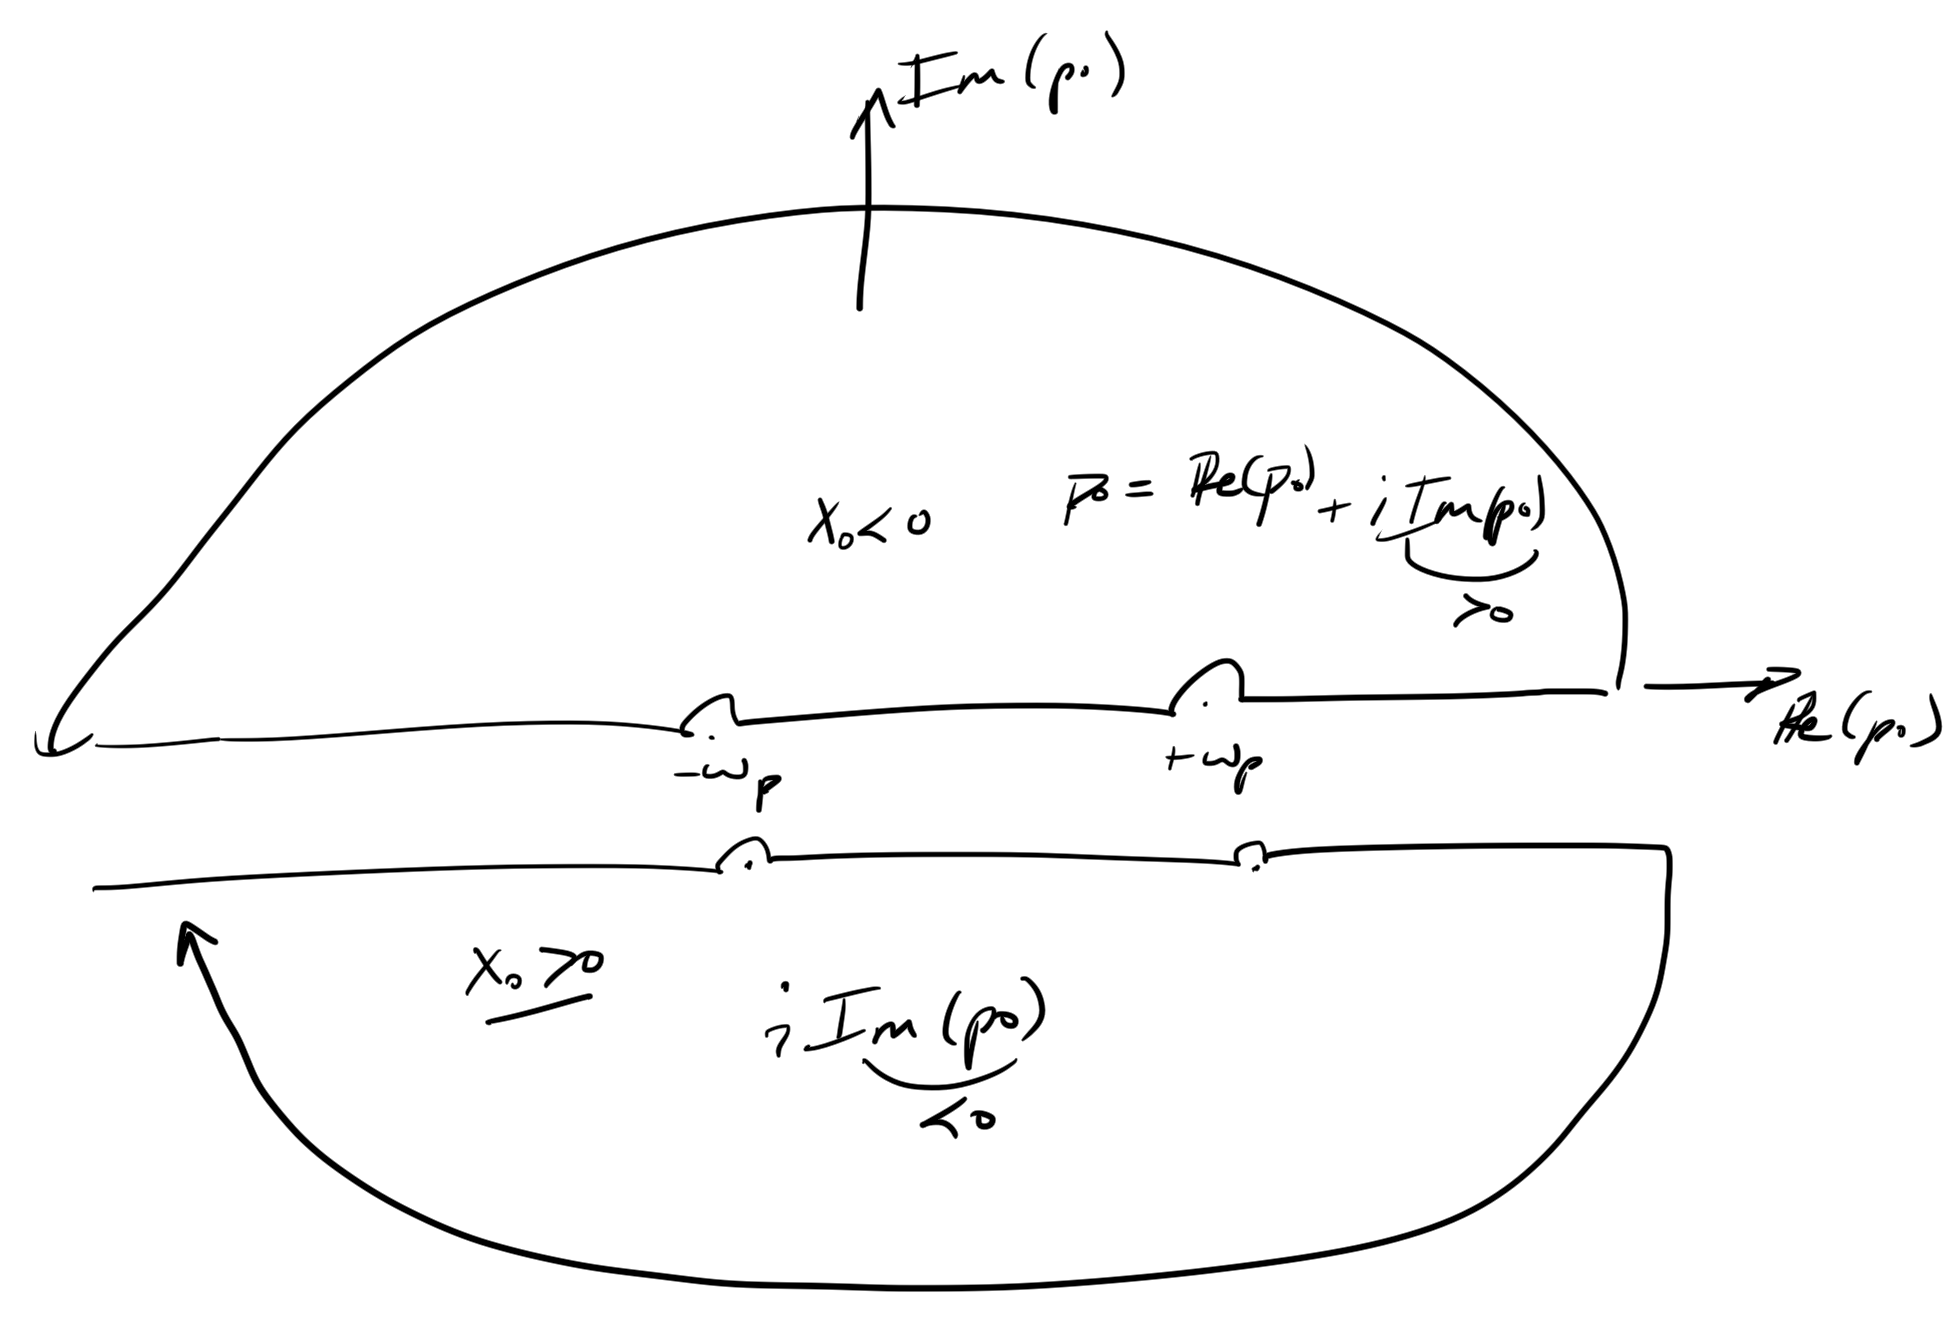 Im(p₀)
x₀<0
p₀ = Re(p₀) + i Im(p₀)
>0
Re(p₀)
-ωₚ
+ωₚ
x₀>0
i Im(p₀)
<0